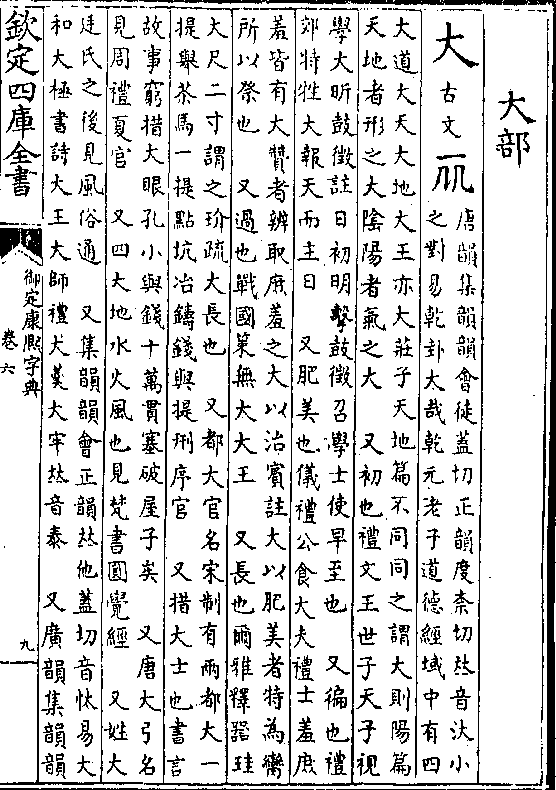 大部
大 古文
唐韻集韻韻會徒蓋切正韻度柰切𠀤音汏小
之對易乾卦大哉乾元老子道德經域中有四
大道大天大地大王亦大莊子天地篇不同同之謂大則陽篇
天地者形之大陰陽者氣之大 又初也禮文王世子天子視
學大昕鼓徵註日初明擊鼓徵召學士使早至也 又徧也禮
郊特牲大報天而主日 又肥美也儀禮公食大夫禮士羞庶
羞皆有大贊者辨取庶羞之大以治賓註大以肥美者特為臠
所以祭也 又過也戰國策無大大王 又長也爾雅釋器珪
大尺二寸謂之玠疏大長也 又都大官名宋制有兩都大一
提舉茶馬一提點坑冶鑄錢與提刑序官 又措大士也書言
故事窮措大眼孔小與錢十萬貫塞破屋子矣 又唐大弓名
見周禮夏官 又四大地水火風也見梵書圓覺經 又姓大
廷氏之後見風俗通 又集韻韻會正韻𠀤他蓋切音忲易大
和大極書詩大王大師禮大羹大牢𠀤音泰 又廣韻集韻韻
欽定四庫全書
御定康熙字典
卷六
九